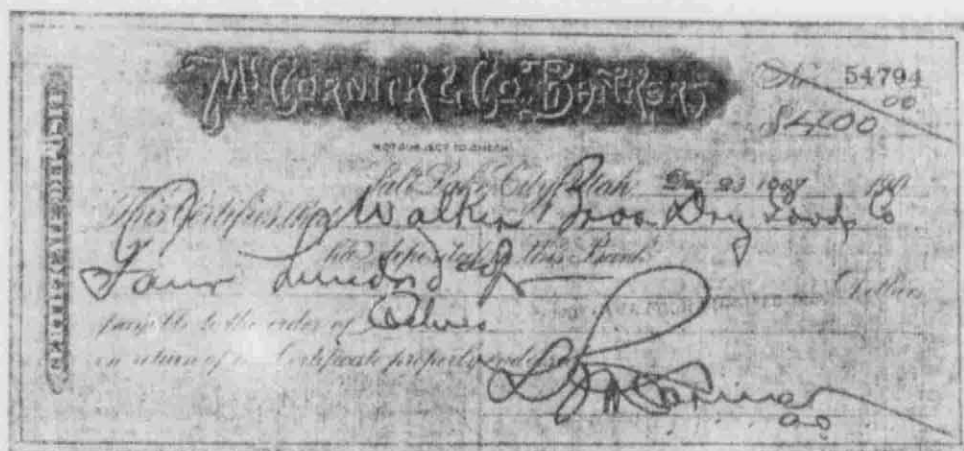 McCORNICK & Co. BANKERS
No 54794
$400 00
NOT SUBJECT TO CHECK
Salt Lake City, Utah, Dec 23 1907 190
This Certifies that Walker Bros Dry Goods Co
has deposited in this Bank
Four Hundred Dollars
payable to the order of
on return of Certificate properly endorsed